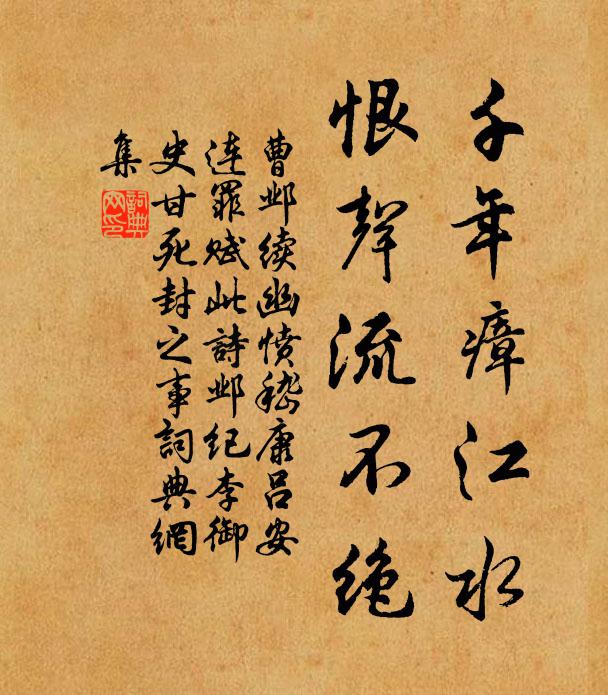 千年瘴江水
恨聲流不绝
曹邺续幽愤嵇康吕安
连罪赋此詩邺纪李御
史甘死封之事詞典網
集
詞典網印